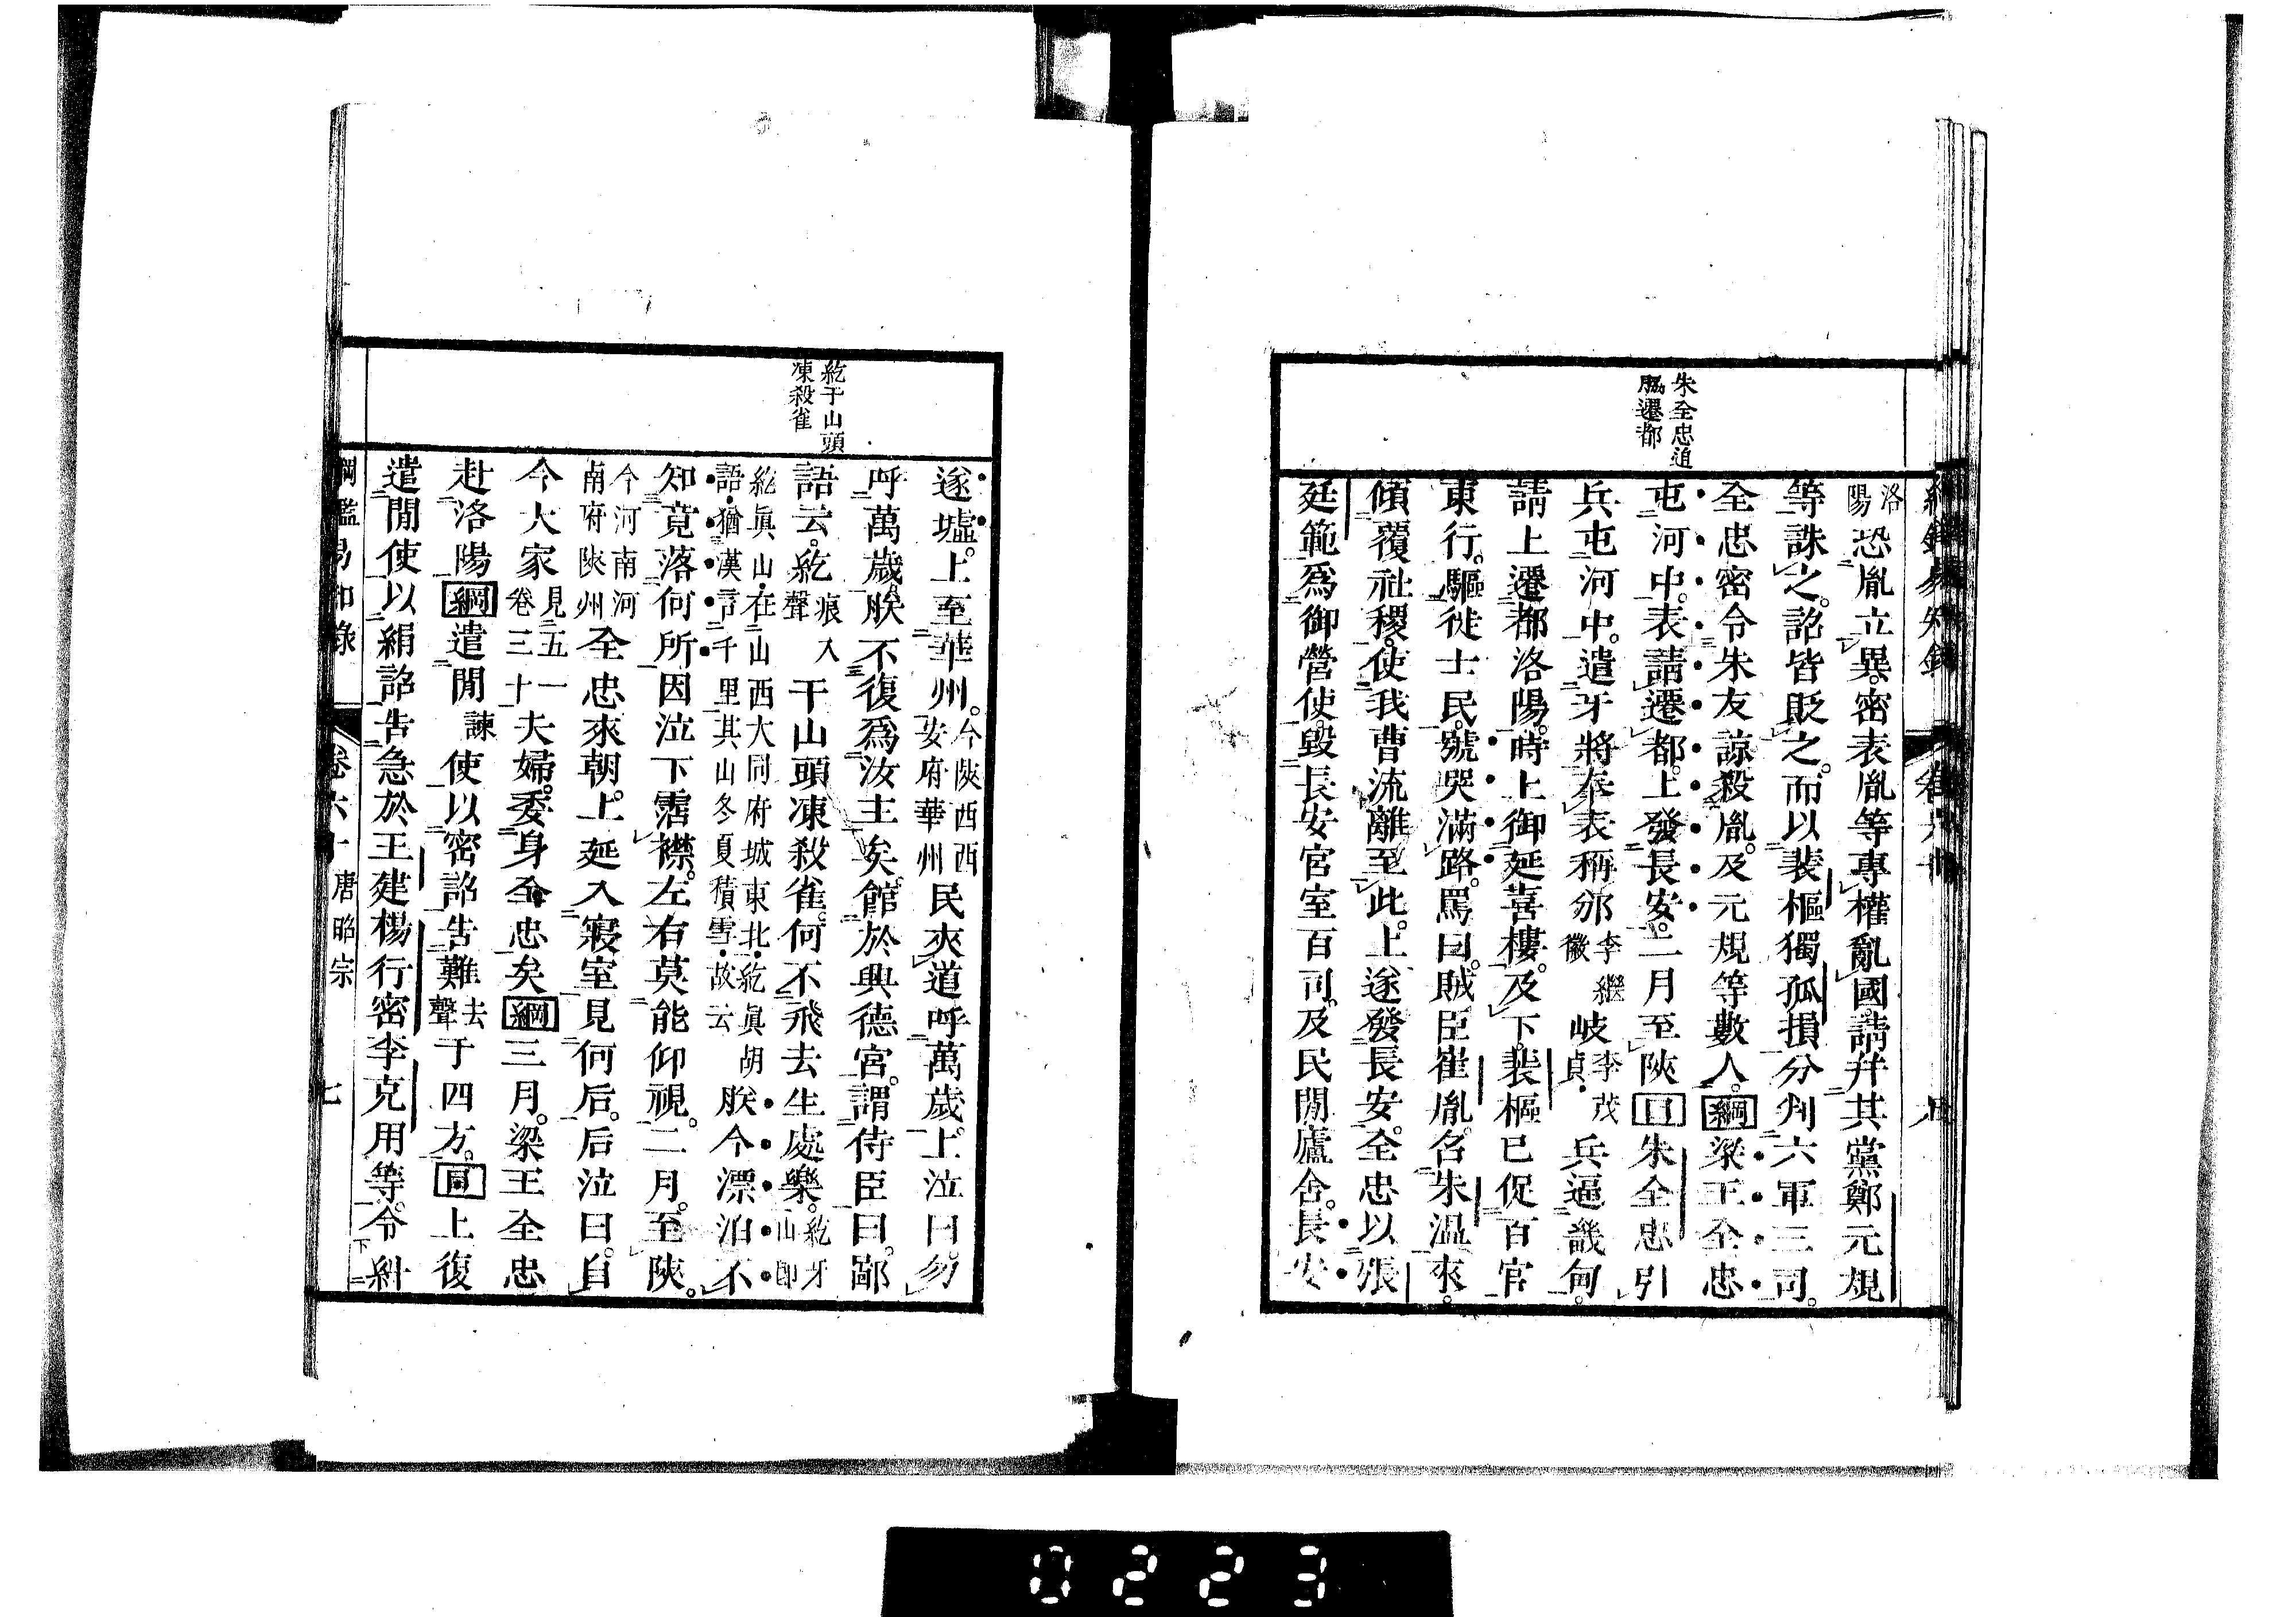 朱全忠迫
脇遷都
洛
陽
恐胤立異。密表胤等專權亂國。請幷其黨鄭元規
等誅之。詔皆貶之。而以裴樞獨孤損分判六軍三司。
全忠密令朱友諒殺胤。及元規等數人。綱梁王全忠
屯河中。表請遷都。上發長安。二月至陝目朱全忠引
兵屯河中。遣牙將奉表稱邠李繼
徽
岐李茂
貞
兵逼畿甸。
請上遷都洛陽。時上御延喜樓。及下。裴樞已促百官
東行。驅徙士民。號哭滿路。罵曰。賊臣崔胤。召朱溫來。
傾覆社稷。使我曹流離至此。上遂發長安。全忠以張
廷範爲御營使。毀長安宮室百司。及民閒廬舍。長安
紇干山頭
凍殺雀
遂墟。上至華州。今陝西西
安府華州
民夾道呼萬歲。上泣曰。勿
呼萬歲。朕不復爲汝主矣。館於興德宮。謂侍臣曰。鄙
語云。紇痕入
聲
干山頭凍殺雀。何不飛去生處樂。紇牙
山卽
紇眞山。在山西大同府城東北。紇眞胡
語。猶漢言千里。其山冬夏積雪。故云
朕今漂泊。不
知竟落何所。因泣下霑襟。左右莫能仰視。二月。至陝。
今河南河
南府陝州
全忠來朝。上延入寢室見何后。后泣曰。自
今大家見五一
卷三十
夫婦。委身全忠矣綱三月。梁王全忠
赴洛陽綱遣閒諫
使以密詔告難去
聲
于四方。目上復
遣閒使以絹詔告急於王建楊行密李克用等。令糾
綱鑑易知錄
卷六十
唐昭宗
七